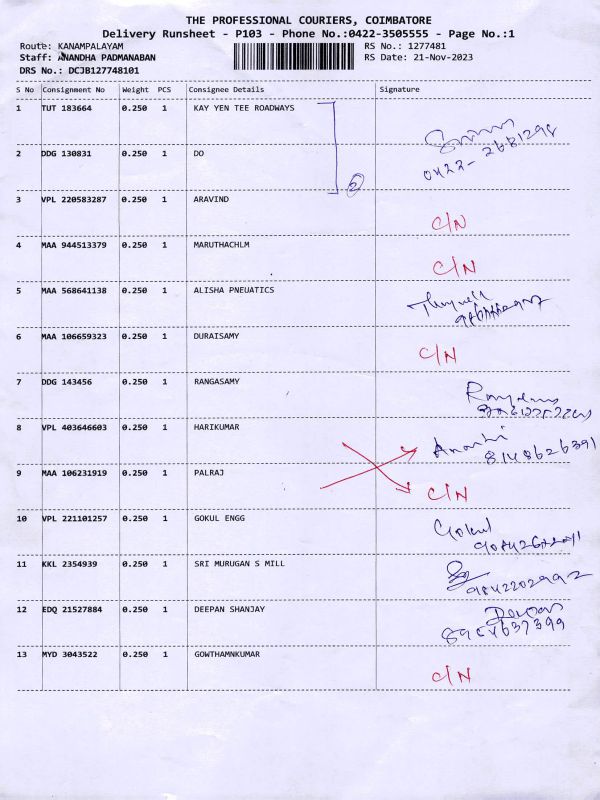 THE PROFESSIONAL COURIERS, COIMBATORE
Delivery Runsheet - P103 - Phone No.:0422-3505555 - Page No.:1
Route: KANAMPALAYAM RS No.: 1277481
Staff: ANANDHA PADMANABAN RS Date: 21-Nov-2023
DRS No.: DCJB127748101
S No Consignment No Weight PCS Consignee Details Signature
1 TUT 183664 0.250 1 KAY YEN TEE ROADWAYS
2 DDG 130831 0.250 1 DO 0422-2681298
2
3 VPL 220583287 0.250 1 ARAVIND C/N
4 MAA 944513379 0.250 1 MARUTHACHLM C/N
5 MAA 568641138 0.250 1 ALISHA PNEUATICS
6 MAA 106659323 0.250 1 DURAISAMY C/N
7 DDG 143456 0.250 1 RANGASAMY
8 VPL 403646603 0.250 1 HARIKUMAR 8148626391
9 MAA 106231919 0.250 1 PALRAJ C/N
10 VPL 221101257 0.250 1 GOKUL ENGG Gokul
11 KKL 2354939 0.250 1 SRI MURUGAN S MILL 9842202992
12 EDQ 21527884 0.250 1 DEEPAN SHANJAY
13 MYD 3043522 0.250 1 GOWTHAMNKUMAR C/N